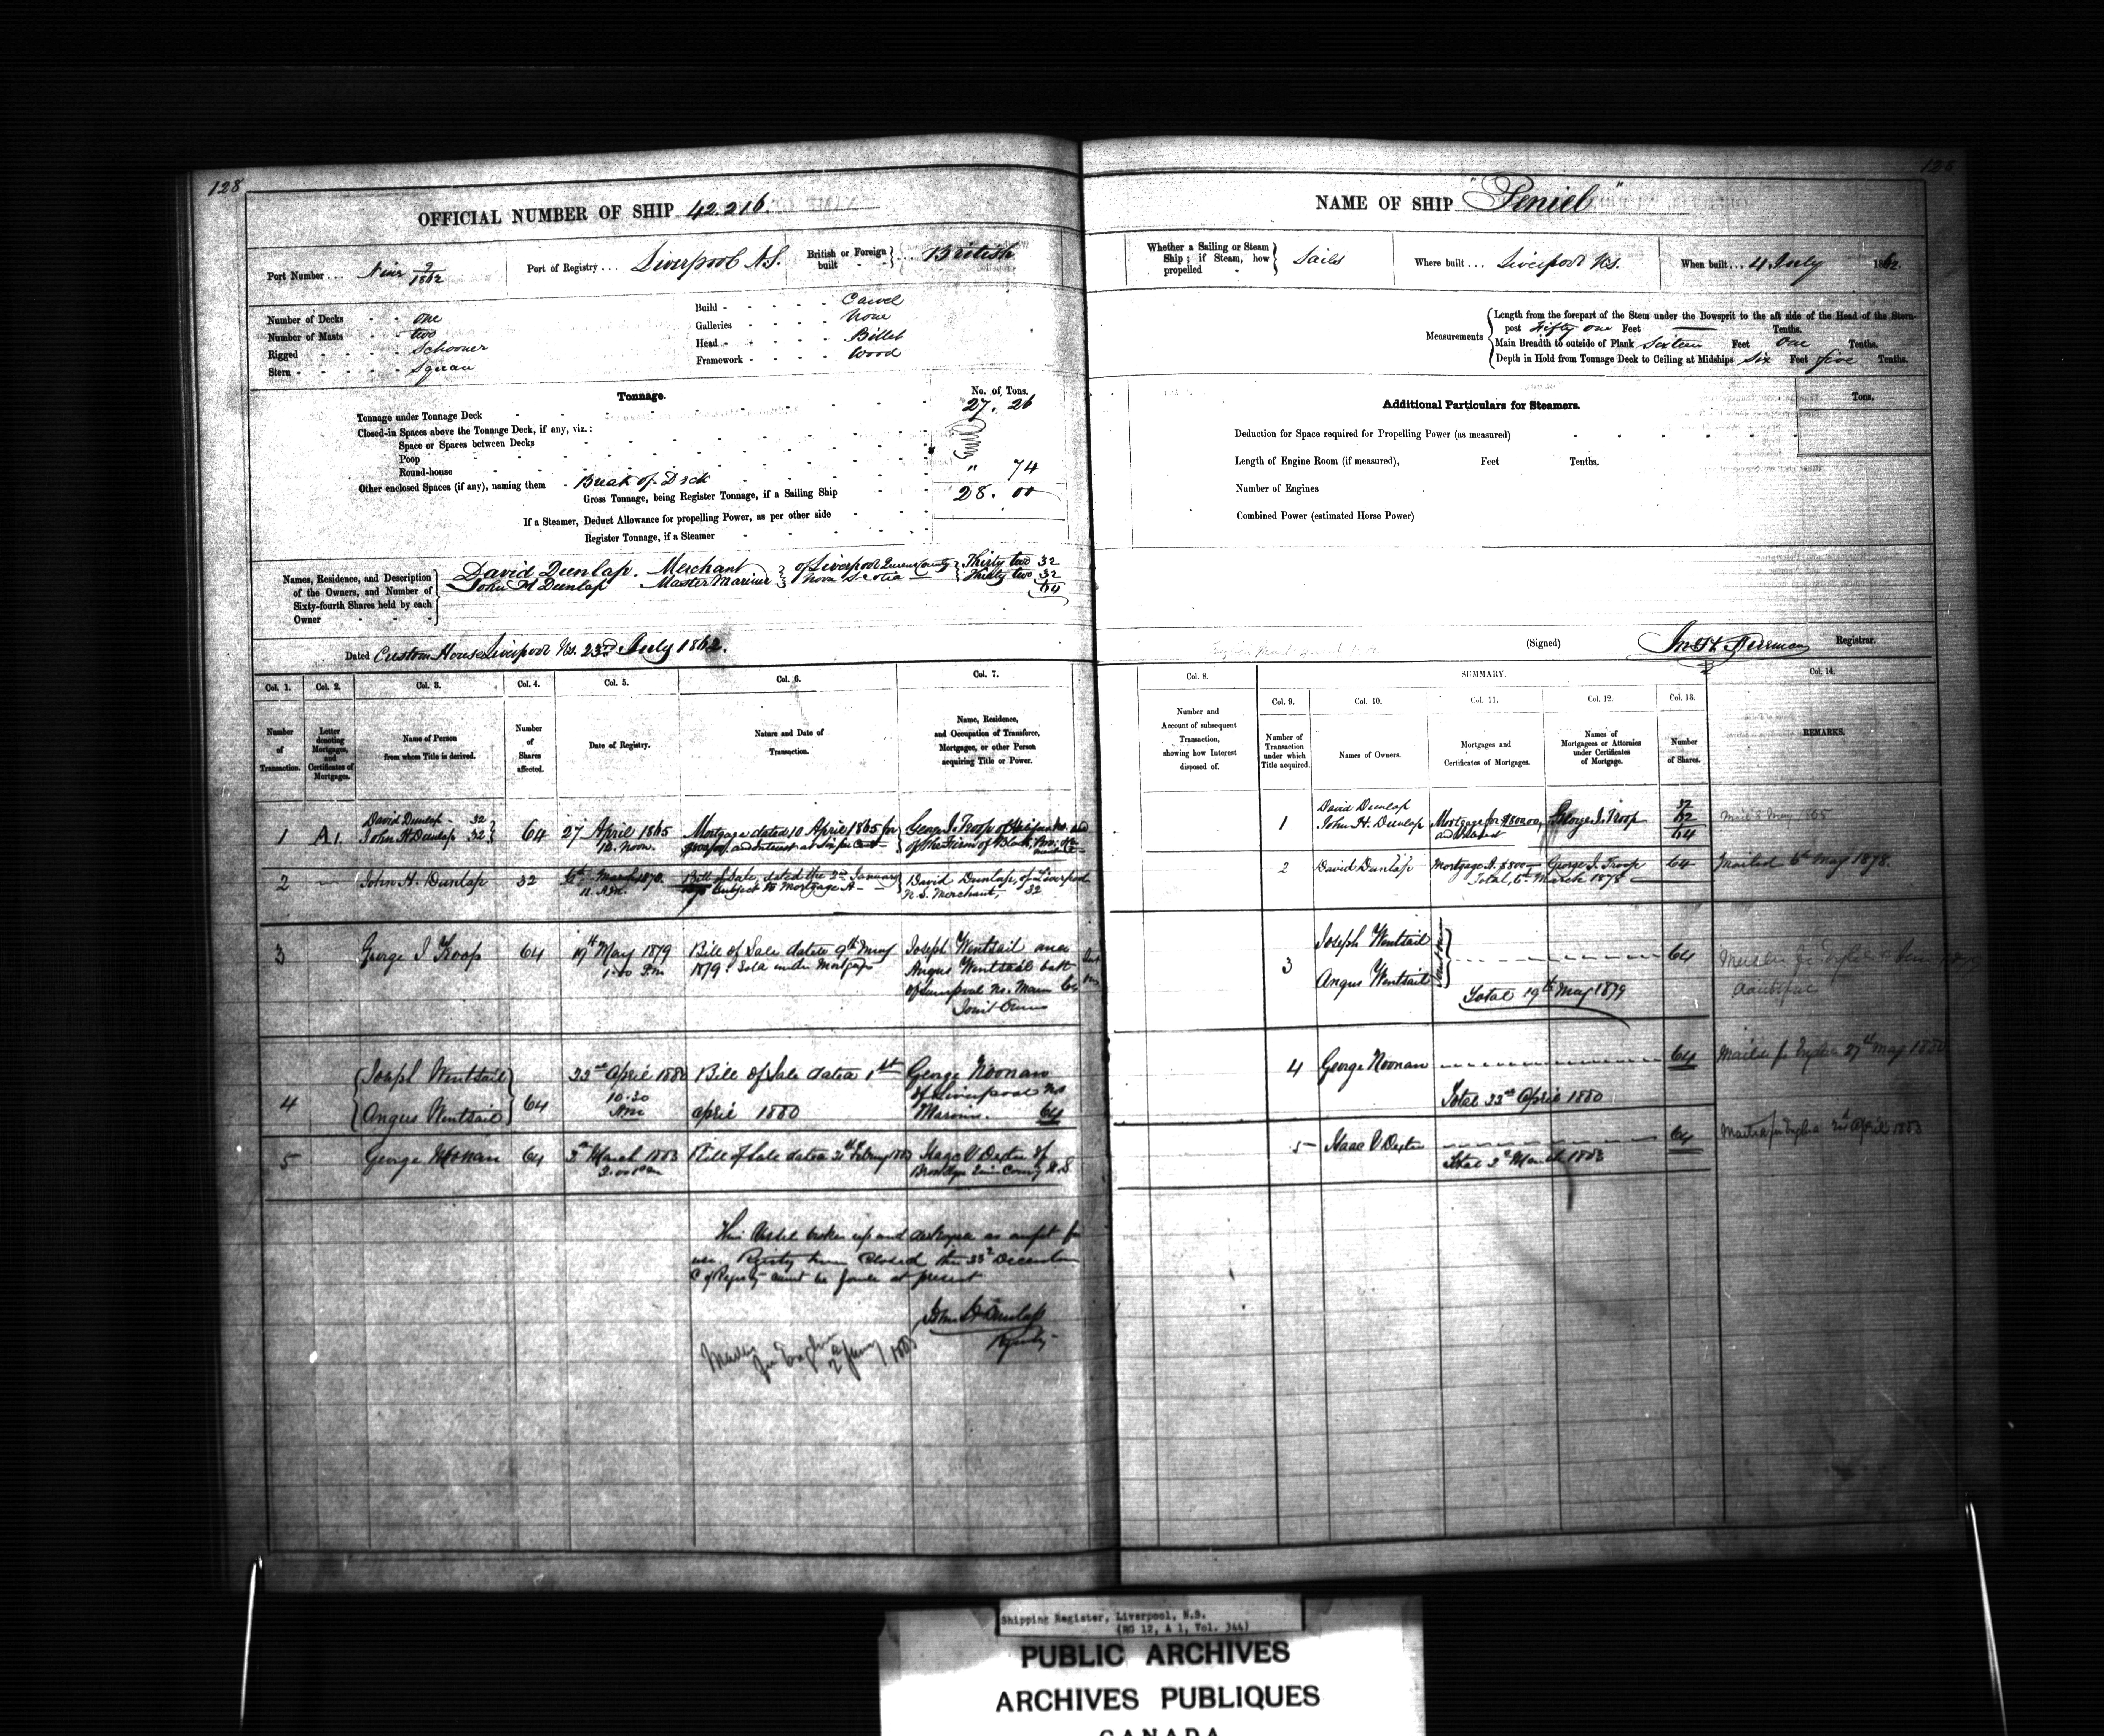 128
OFFICIAL NUMBER OF SHIP 42.216.
Port Number ... Nine 9/1862
Port of Registry ... Liverpool N.S.
British or Foreign built - - } ... British
Number of Decks - - one
Number of Masts - - two
Rigged - - - - Schooner
Stern - - - - - Square
Build - - - - - Carvel
Galleries - - - - None
Head - - - - - Billet
Framework - - - - Wood
Tonnage.
No. of Tons.
Tonnage under Tonnage Deck 27. 26
Closed-in Spaces above the Tonnage Deck, if any, viz.:
Space or Spaces between Decks
Poop
Round-house
Other enclosed Spaces (if any), naming them - Break of Deck " 74
Gross Tonnage, being Register Tonnage, if a Sailing Ship 28. 00
If a Steamer, Deduct Allowance for propelling Power, as per other side
Register Tonnage, if a Steamer
Names, Residence, and Description of the Owners, and Number of Sixty-fourth Shares held by each Owner
David Dunlap. Merchant } of Liverpool Queens County } Thirty two 32
John H Dunlap Master Mariner } Nova Scotia } Thirty two 32
64
Dated Custom House Liverpool N.S. 23rd July 1862.
Col. 1. Col. 2. Col. 3. Col. 4. Col. 5. Col. 6. Col. 7.
Number of Transaction.
Letter denoting Mortgages, and Certificates of Mortgages.
Name of Person from whom Title is derived.
Number of Shares affected.
Date of Registry.
Nature and Date of Transaction.
Name, Residence, and Occupation of Transferee, Mortgagee, or other Person acquiring Title or Power.
1 A1. David Dunlap - 32 John H Dunlap 32 } 64 27 April 1865 12. Noon. Mortgage dated 10 April 1865 for and Interest George J. Troop of Halifax of the Firm of Black, Bros.
2 John H. Dunlap 32 6th March 1878. 11. A.M. Bill of Sale, dated the 2nd January subject to Mortgage A David Dunlap, of Liverpool N.S. Merchant, 32
3 George J Troop 64 19th May 1879 1.00 P.m Bill of Sale dated 9th May 1879. Sold under Mortgage Joseph Wentsail and Angus Wentsail both of Liverpool N.S. 64 Joint Owners
4 { Joseph Wentsail Angus Wentsail } 64 22nd April 1880 10.30 Am Bill of Sale dated 1st april 1880 George Noonan of Liverpool NS Mariner. 64
5 George Noonan 64 2nd March 1883 2.00 Pm Bill of Sale dated Isaac V Dexter of Brooklyn County N.S
This Vessel broken up and destroyed as unfit for
use Registry Closed the December
C of Registry cannot be found at present
John H Dunlap
128
NAME OF SHIP "Peniel"
Whether a Sailing or Steam Ship; if Steam, how propelled - } Sails
Where built ... Liverpool N.S.
When built ... 4 July 1862.
Measurements
Length from the forepart of the Stem under the Bowsprit to the aft side of the Head of the Stern-
post Fifty one Feet — Tenths.
Main Breadth to outside of Plank Sixteen Feet One Tenths.
Depth in Hold from Tonnage Deck to Ceiling at Midships Six Feet five Tenths.
Additional Particulars for Steamers.
Tons.
Deduction for Space required for Propelling Power (as measured)
Length of Engine Room (if measured), Feet Tenths.
Number of Engines
Combined Power (estimated Horse Power)
(Signed) Registrar.
Col. 8. SUMMARY. Col. 14.
Col. 9. Col. 10. Col. 11. Col. 12. Col. 13.
Number and Account of subsequent Transaction, showing how Interest disposed of.
Number of Transaction under which Title acquired.
Names of Owners.
Mortgages and Certificates of Mortgages.
Names of Mortgagees or Attornies under Certificates of Mortgage.
Number of Shares.
REMARKS.
1 David Dunlap John H. Dunlap Mortgage for $800.00 and Interest George J. Troop 32 32 64
2 David Dunlap Mortgage A. $800 George J. Troop 64 Mailed 6th May 1878.
Total, 6th March 1878
3 Joseph Wentsail Angus Wentsail Joint Owners 64
Total 19th May 1879
4 George Noonan 64 Mailed 27th May 1880
Total 22nd April 1880
5 Isaac V Dexter 64 April 1883
Total 2nd March 1883
Shipping Register, Liverpool, N.S.
(RG 12, A 1, Vol. 344)
PUBLIC ARCHIVES
ARCHIVES PUBLIQUES
CANADA